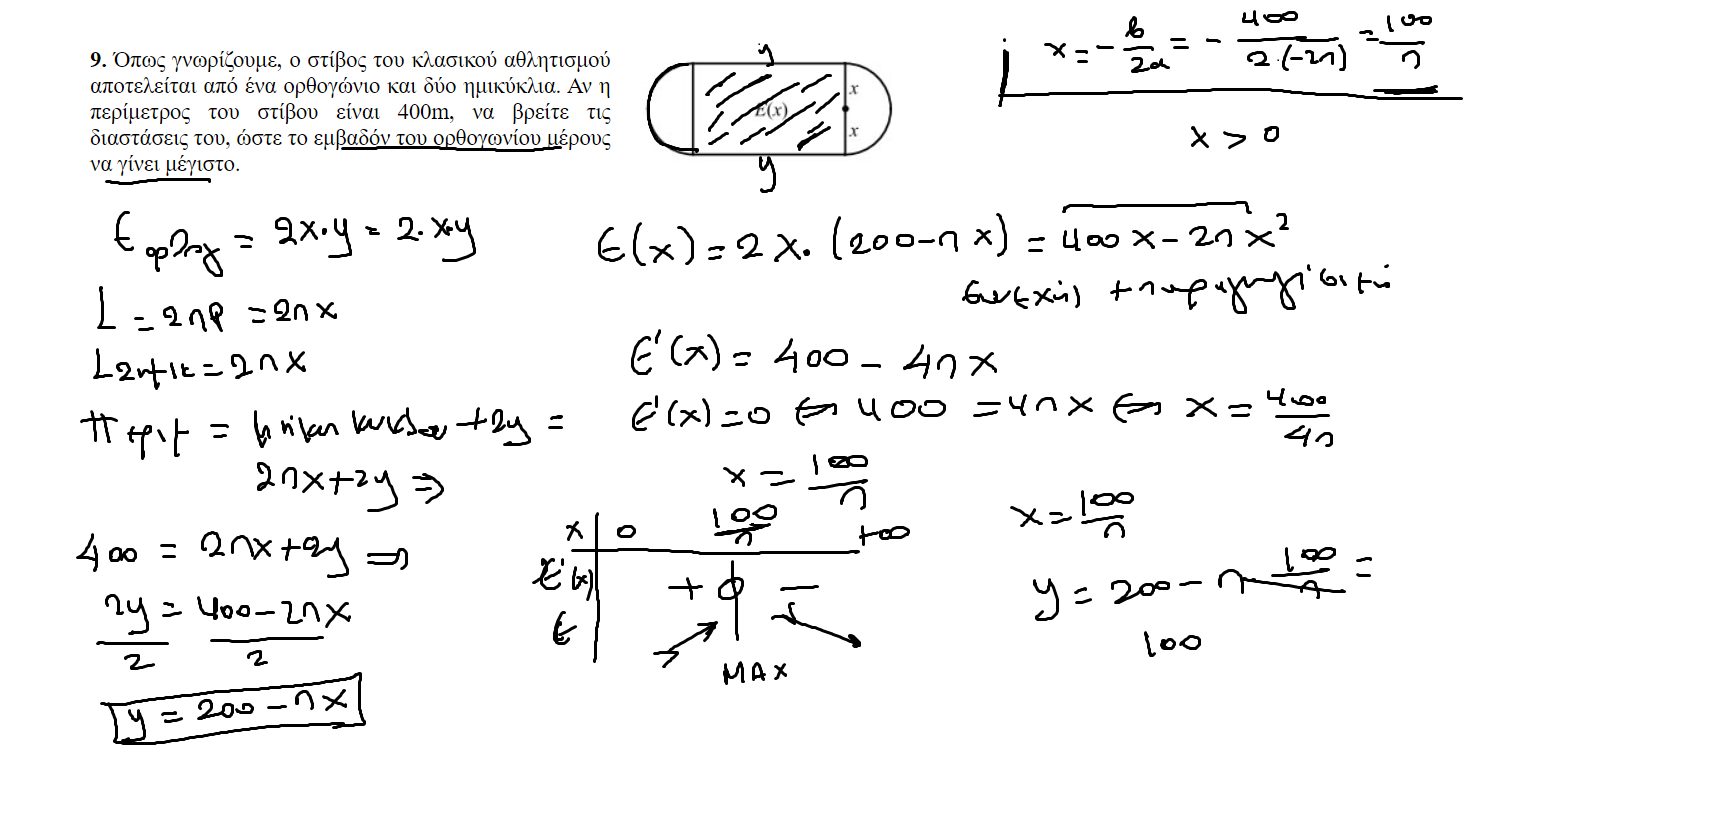 9. Όπως γνωρίζουμε, ο στίβος του κλασικού αθλητισμού
αποτελείται από ένα ορθογώνιο και δύο ημικύκλια. Αν η
περίμετρος του στίβου είναι 400m, να βρείτε τις
διαστάσεις του, ώστε το εμβαδόν του ορθογωνίου μέρους
να γίνει μέγιστο.
y
E(x)
x
x
y
x = - b/2α = - 400/2·(-2π) = 100/π
x > 0
E ορθογ = 2x·y = 2·x·y
L = 2πρ = 2πx
L = 2πx
= +2y =
2πx+2y ⇒
400 = 2πx+2y ⇒
2y/2 = 400-2πx/2
y = 200-πx
E(x) = 2x·(200-πx) = 400x-2πx²
E'(x) = 400-4πx
E'(x)=0 ⇔ 400=4πx ⇔ x=400/4π
x = 100/π
x 0 100/π +∞
E'(x) + 0 -
E
MAX
x = 100/π
y = 200-π 100/π =
100